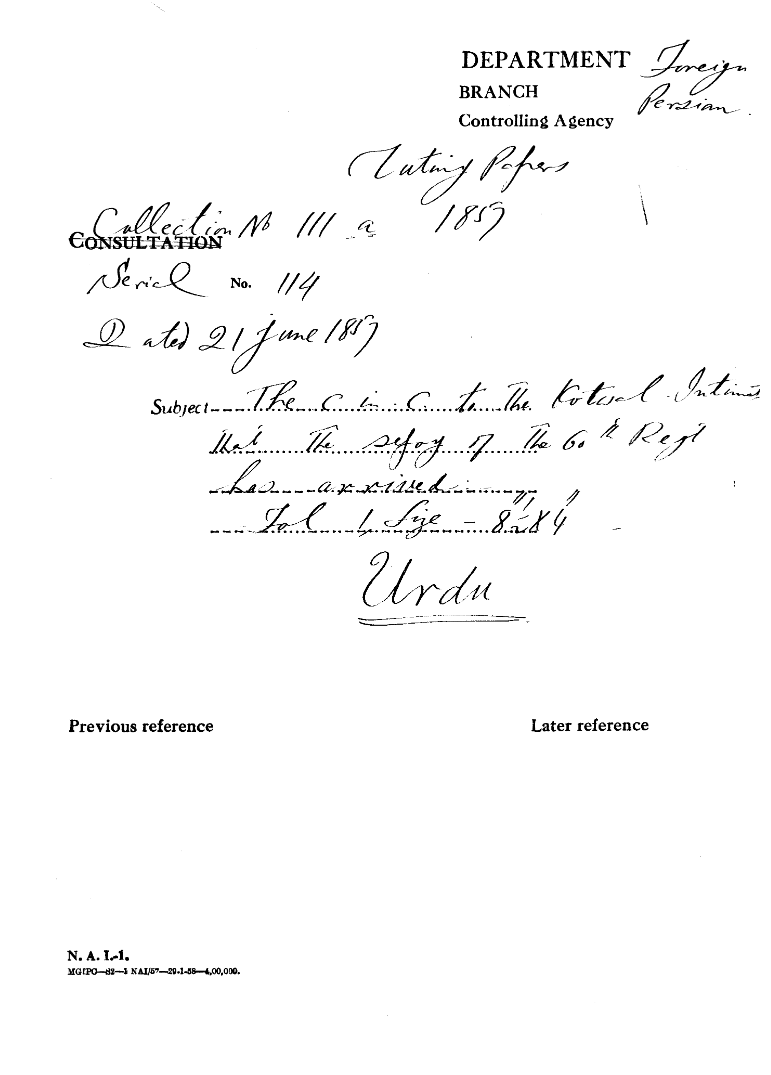 DEPARTMENT Foreign
BRANCH Persian
Controlling Agency
Mutiny Papers
Collection No 111 a 1857
CONSULTATION
Serial No. 114
Dated 21 June 1857
Subject The C in C to the Kotwal Intimat
that the sepoy of the 60th Regt
has arrived
Fol 1, Size - 8"x 4"
Urdu
Previous reference Later reference
N. A. I.-1.
MGIPC—S2—3 NAI/57—29-1-58—4,00,000.